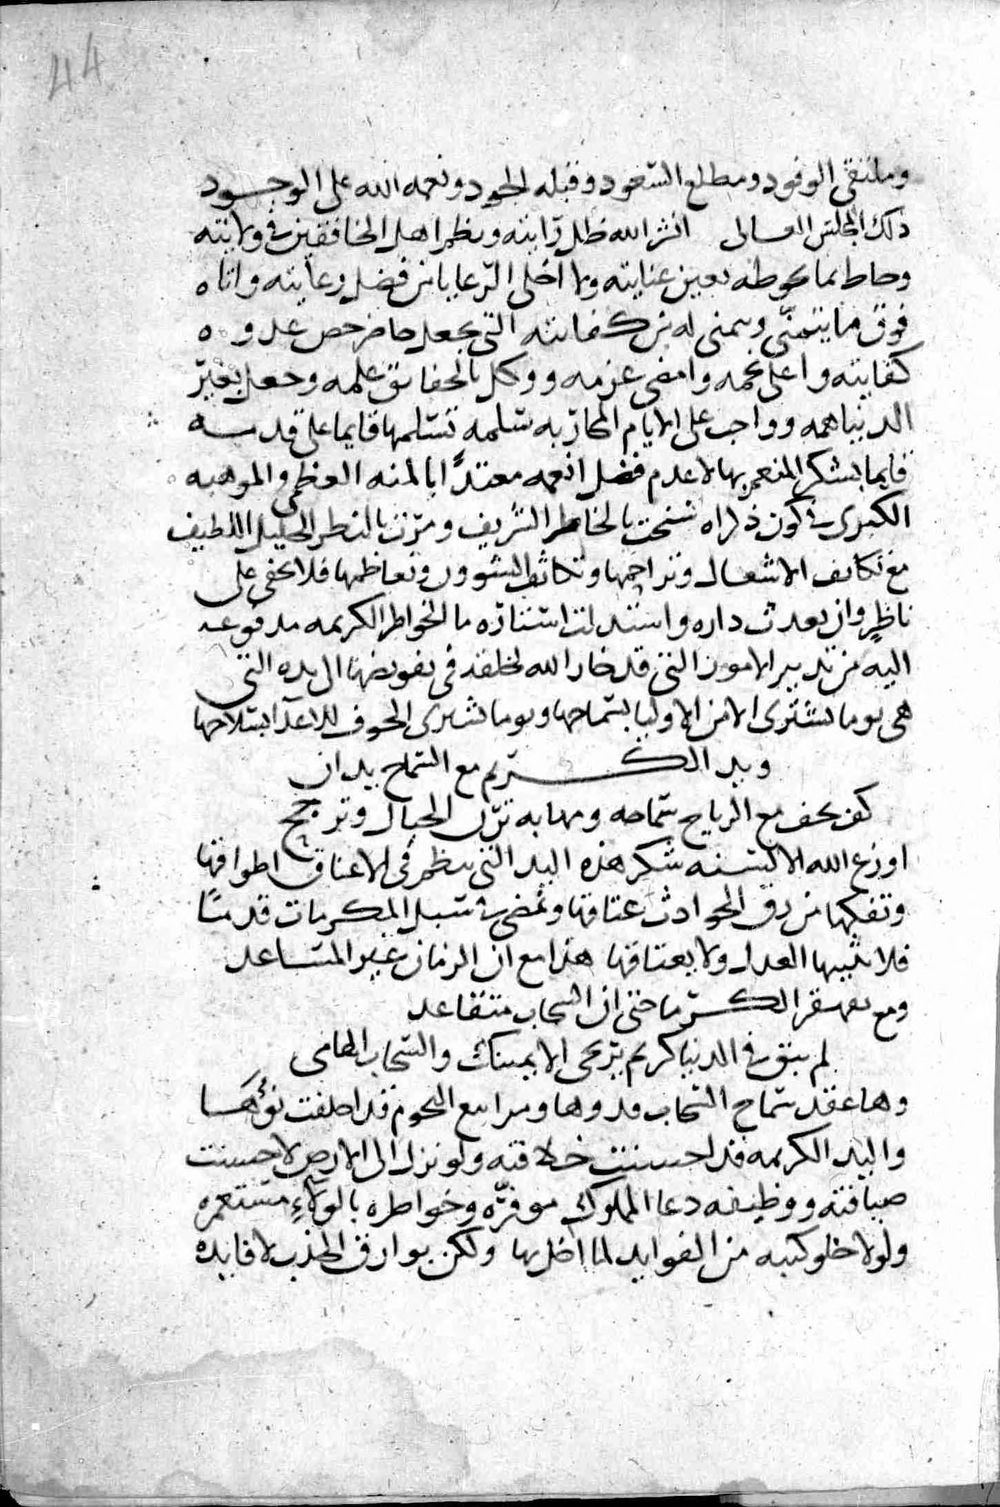 44
وملتقى الوفود ومطلع السعود وقبله الجود ونعمه الله على الوجود
ذلك المجلس العالى انشر الله ظل رايته ونظم اهل الخافقين فى ولايته
وحاط ما يحوطه بعين عنايته ولا اخلى الرعايا من فضل رعايته واتاه
فوق ما يتمنى ويتمنى له من كفايته التى يجعل حاضر حص عدوه
كفايته واعلى نجمه وامضى عزمه ووكل بالحقائق علمه وجعل بغير
الدنيا همه وواجب على الايام المحاربه سلمه تستلمها قايما على قدسه
قايما بشكر المنعم بها لا عدم فضل انعمه معتدا بالمنه العظمى والموهبه
الكبرى فى كون ذكراه سنحت بالخاطر الشريف ومرت بالنظر الجليل اللطيف
مع تكاثف الاشغال وتزاحمها وتكاثر الشوون وتعاظمها فلا يخفى على
ناظر وان بعدت داره واستدلت استناره ما الخواطر الكريمه مدفوعه
اليه من تدبير الامور التى قد خار الله لخلقه فى تفويضها الى يده التى
هى يوما تشترى الامن الاوليا بسماحها ويوما تشرى الخوف للاعدا بسلاحها
ويد الكريم مع السماح يدان
كف تخف مع الرياح سماحه ومهابه تزن الجبال وترجح
اوزع الله الالسنه شكر هذه اليد التى ينظم فى الاعناق اطواقها
وتفكها من رق الحوادث عتاقها وتمضى فى سبل المكرمات قدما
فلا يثنيها العدل ولا يعتاقها هذا مع ان الزمان غير المساعد
ومع تقهقر الكرما حتى ان السحاب متقاعد
لم يبق فى الدنيا كريم يرتجى الا يمينك والسحاب الهامى
وها عقد سماح السحاب مدوها ومرابع النجوم قد اخلفت نؤها
واليد الكريمه قد احسنت خلافته ولو نزل الى الارض لاحسنت
ضيافته ووظيفه دعا المملوك موفره وخواطره بالولاء مستعمره
ولولا خلو كتبه من الفوايد لما اخل بها ولكن بوارق الجذب لا فايده